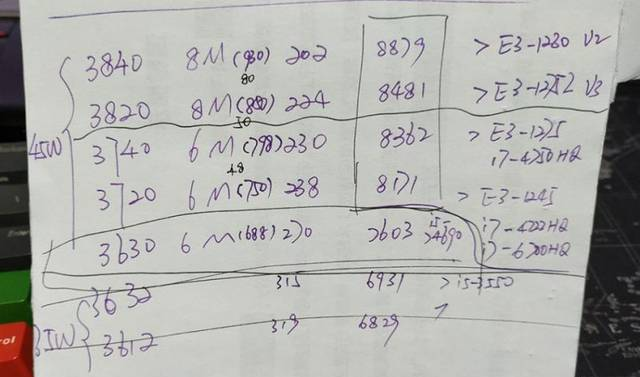 3840 8M (930) 202 8879 > E3-1230 V2
80
3820 8M (880) 224 8481 > E3-1252 V3
50
45W
3740 6M (798) 230 8362 > E3-1275
i7-4750HQ
48
3720 6M (750) 238 8171 > E3-1245
3630 6M (688) 270 7603 i5-4690 i7-4722HQ
i7-6700HQ
3632 315 6931 > i5-3550
35W
3612 319 6829
rol